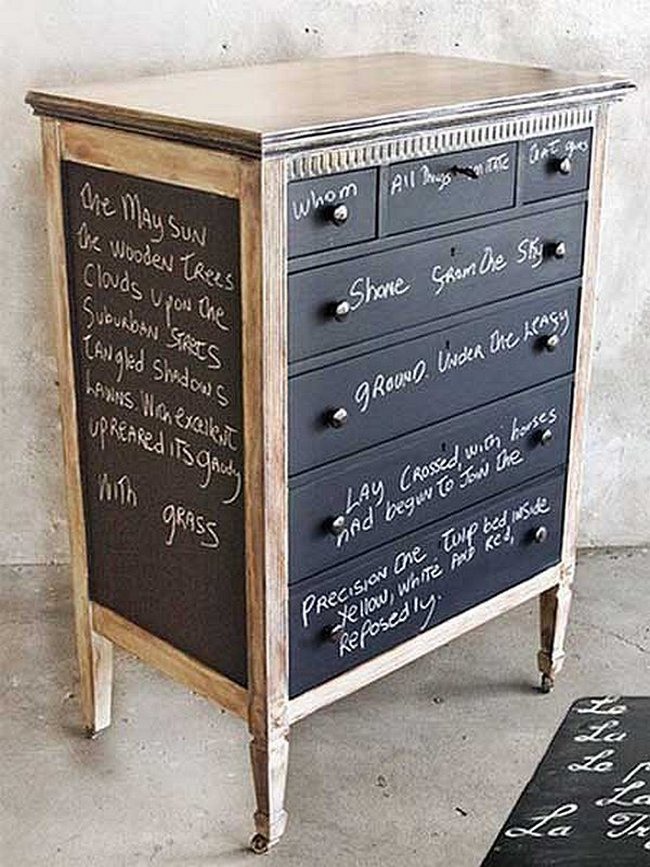 The MAY SUN
the wooden trees
Clouds Upon the
Suburban streets
tangled shadows
Lawns. With excellent
upreared its gaudy
with grass
whom
All things imitate
that gives
Shone from the Sky
GROUND. Under the Leafy
LAY Crossed, with houses
had begun to Join the
PRECISION the Tulip bed, inside
Yellow, white AND Red,
Reposedly.
Le
La
Le p
La
La Tr